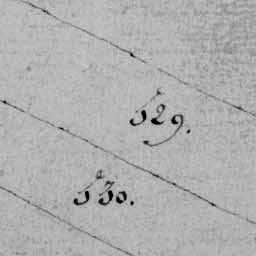 529.
530.